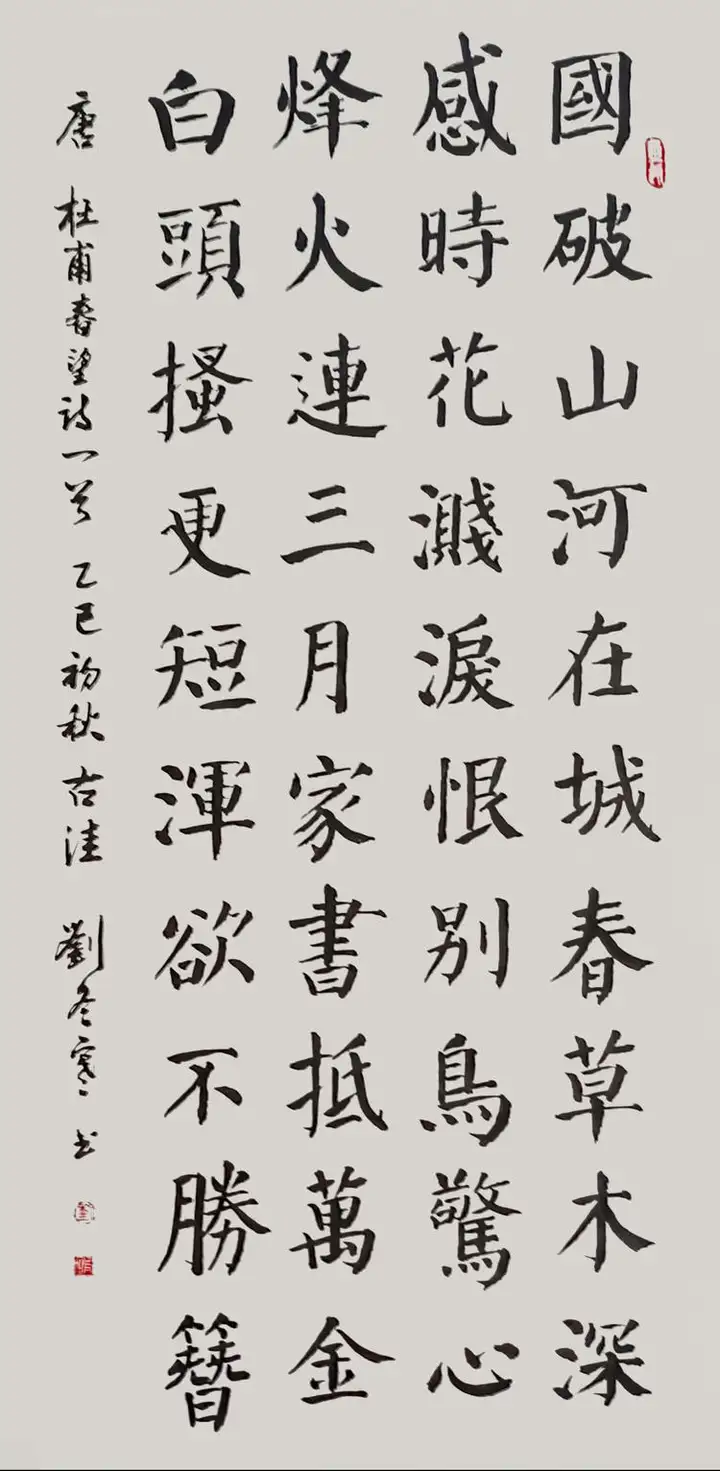 國破山河在城春草木深
感時花濺淚恨别鳥驚心
烽火連三月家書抵萬金
白頭搔更短渾欲不勝簪
唐 杜甫春望詩一首 乙巳初秋 古洼 劉冬寒 书